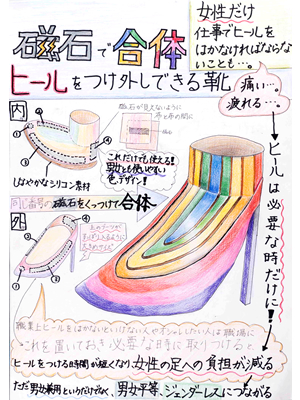 女性だけ
仕事でヒールを
はかなければならな
いことも…。
磁石で合体
ヒールをつけ外しできる靴
痛い…
疲れる…
→ヒールは必要な時だけに!
内
磁石が見えないように
布と布の間に
これだけでも使える!!
男女とも使いやすい
色・デザイン!
しなやかなシリコン素材
同じ番号の磁石をくっつけて合体
外
職業上ヒールをはかないといけない人やオシャレしたい人は職場に
これを置いておき必要な時に取りつけると
ヒールをつける時間が短くなり、女性の足への負担が減る
ただ男女兼用というだけでなく、男女平等、ジェンダーレスにつながる